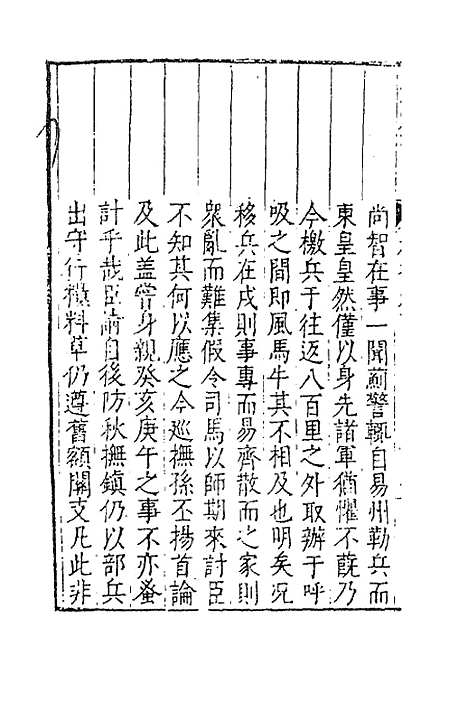 尚智在事一聞薊警輒自易州勒兵而
東皇皇然僅以身先諸軍猶懼不旣乃
今檄兵于往返八百里之外取辦于呼
吸之間即風馬牛其不相及也明矣况
移兵在戍則事專而易齊散而之家則
衆亂而難集假令司馬以師期來討臣
不知其何以應之今巡撫孫丕揚首論
及此盖嘗身親癸亥庚午之事不亦蚤
計乎哉臣請自後防秋撫鎮仍以部兵
出守行糧料草仍遵舊額關支凡此非